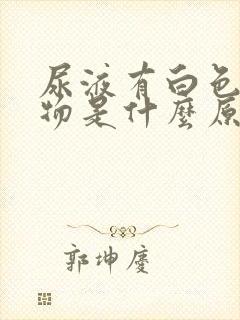 尿液有白色
物是什麼原
郭坤慶